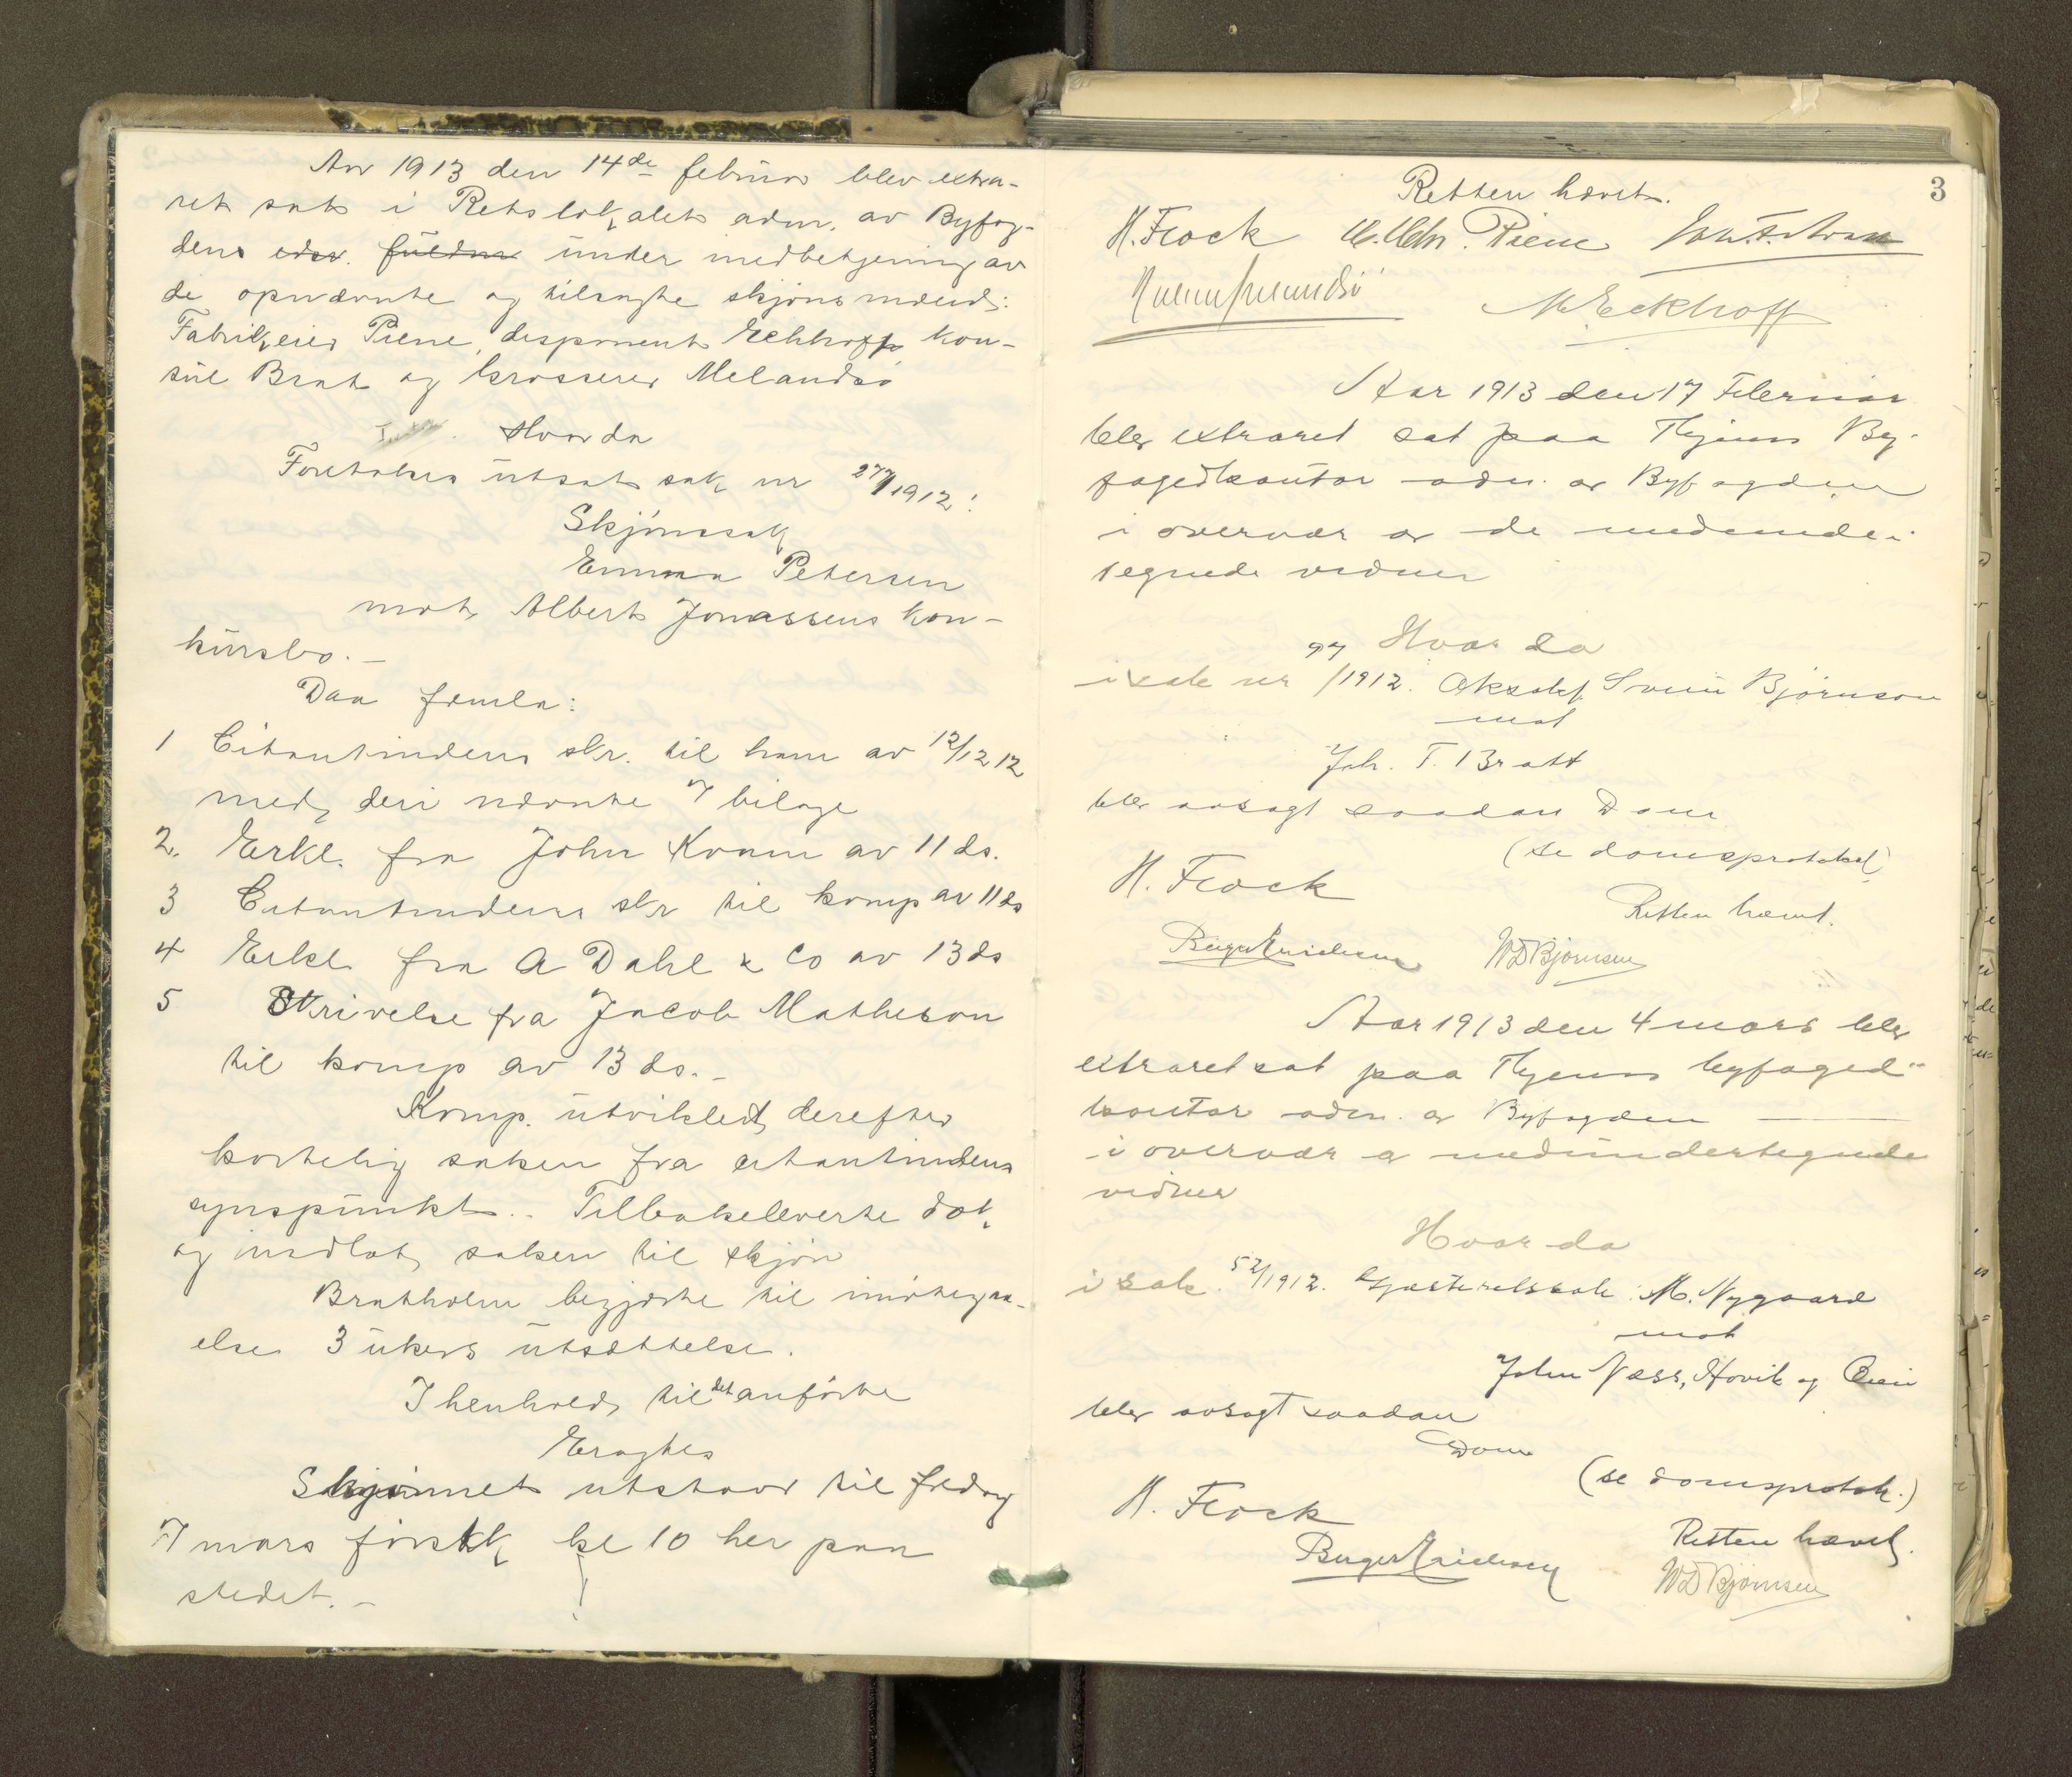 Aar 1913 den 14de februar blev extra-
ret sat i Retslokalet adm. av Byfog-
den edsv. fuldm under medbetjening av
de opnævnte og tilsagte skjønsmænd:
Fabrikeier Piene, disponent Eckhoff kon-
sul Brat og Grosserer Melandsö
Hvor da
Foretokes utsat sak nr 27/1912:
Skjönssak
Emma Petersen
mot Albert Jonassens kon-
kursbo.-
Daa fremla:
1 Citantindens skr. til ham av 12/12 12
med deri nævnte 7 bilage
2. Erkl. fra John Kvam av 11 ds.
3 Citantindens skr til komp av 11 ds
4 Erkl. fra A Dahl & Co av 13 ds
5 Skrivelse fra Jacob Matheson
til komp av 13 ds.-
Komp. utviklet derefter
kortelig saken fra citantindens
synspunkt.- Tilbakeleverte dok.
og indlot saken til skjön
Bratholm begjærte til imötegaa-
else 3 ukers utsættelse.
I henhold til det anförte
Eragtes
Skjönnet utstaar til fredag
7 mars förstk kl 10 her paa
stedet.-
3
Retten hævet.
H. Fcock Piene
M Eckhoff
Aar 1913 den 17 Februar
blev extraret sat paa Thjems By-
fogedkontor adm. av Byfogden
i overvær av de medunder-
tegnede vidner
Hvor da
i sak nr 97/1912. Aksolsk Svein Bjørnson
mot
Joh. T. Bratt
blev avsagt saadan Dom
(se domsprotokol)
H. Fcock
Retten hævet.
Birger Erichsen WD Bjørnsen
Aar 1913 den 4 mars blev
extraret sat paa Thjems byfoged-
kontor adm. av Byfogden
i overvær av medundertegnede
vidner
Hvor da
i sak 52/1912. Gjesteretssak: M. Nygaard
mot
John Næss, Hovik og
blev avsagt saadan
Dom
(se domsprotok.)
H. Fcock
Retten hævet.
Birger Erichsen WD Bjørnsen